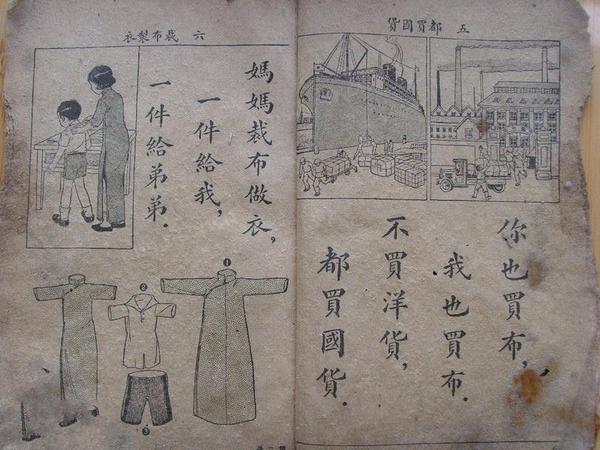 五 都買國貨
你也買布，
我也買布．
不買洋貨，
都買國貨．
六 裁布製衣
媽媽裁布做衣，
一件給我，
一件給弟弟．
❶
❷
❸